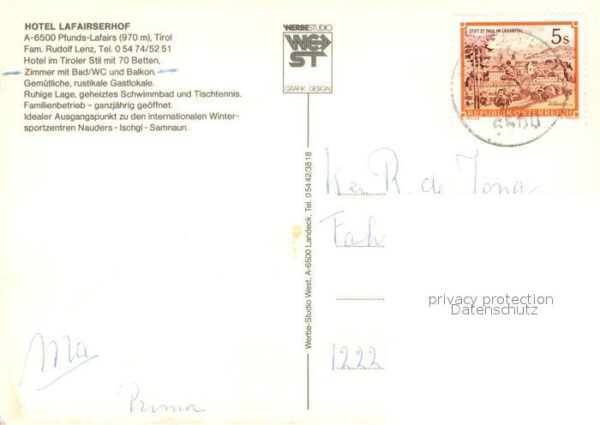 HOTEL LAFAIRSERHOF
A-6500 Pfunds-Lafairs (970 m), Tirol
Fam. Rudolf Lenz, Tel. 0 54 74/52 51
Hotel im Tiroler Stil mit 70 Betten,
Zimmer mit Bad/WC und Balkon.
Gemütliche, rustikale Gastlokale.
Ruhige Lage, geheiztes Schwimmbad und Tischtennis.
Familienbetrieb – ganzjährig geöffnet.
Idealer Ausgangspunkt zu den internationalen Winter-
sportzentren Nauders - Ischgl - Samnaun.
WERBESTUDIO
WEST
GRAFIK DESIGN
STIFT ST. PAUL IM LAVANTTAL
5s
REPUBLIK ÖSTERREICH
6500
Werbe-Studio West, A-6500 Landeck, Tel. 05442/3818
R. de Jong
Fah
1222
privacy protection
Datenschutz
Prima